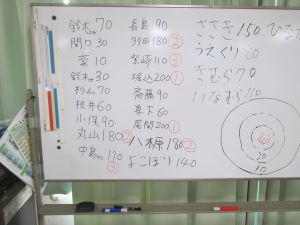 鈴木 70
関口 30
菜 10
鈴木 30
杉山 70
根井 60
小俣 90
丸山 180 ②
中島 170 ③
長島 90
多田 180 ②
柴崎 110 ③
堀込 200 ①
斎藤 90
真下 60
尾関 200 ①
八木原 180 ②
よこぼり 140
ささき 150
うえくり 80
きむら 70
いなむら 110
20
10